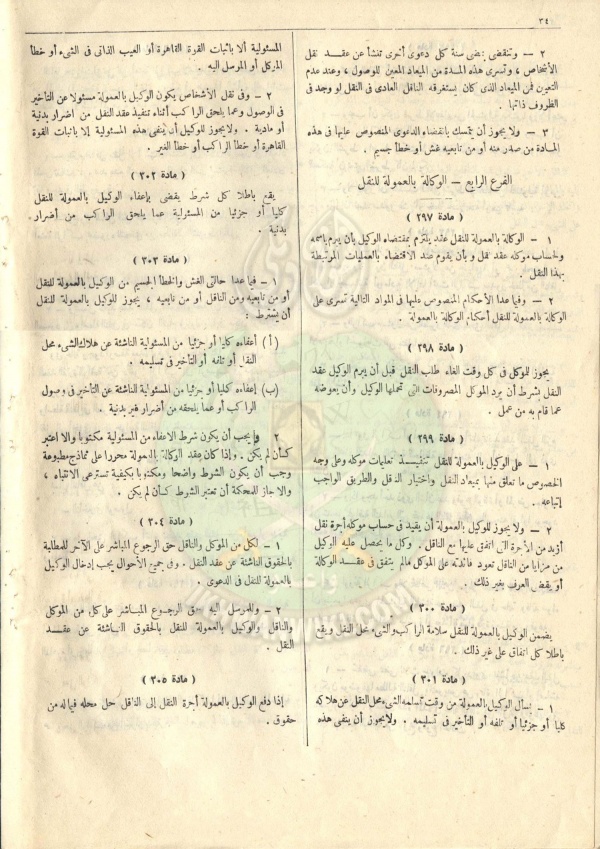 ٣٤
٢ – وتنقضي بمضي سنة كل دعوى أخرى تنشأ عن عقد نقل
الأشخاص ، وتسرى هذه المدة من الميعاد المعين للوصول ، وعند عدم
التعيين فمن الميعاد الذى كان يستغرقه الناقل العادى فى النقل لو وجد فى
الظروف ذاتها .
٣ – ولا يجوز أن يتمسك بانقضاء الدعوى المنصوص عليها فى هذه
المادة من صدر منه أو من تابعيه غش أو خطأ جسيم .
الفرع الرابع – الوكالة بالعمولة للنقل
( مادة ٢٩٧ )
١ – الوكالة بالعمولة للنقل عقد يلتزم بمقتضاه الوكيل بأن يبرم باسمه
ولحساب موكله عقد نقل وبأن يقوم عند الاقتضاء بالعمليات المرتبطة
بهذا النقل .
٢ – وفيما عدا الأحكام المنصوص عليها فى المواد التالية تسرى على
الوكالة بالعمولة للنقل أحكام الوكالة بالعمولة .
( مادة ٢٩٨ )
يجوز للموكل فى كل وقت الغاء طلب النقل قبل أن يبرم الوكيل عقد
النقل بشرط أن يرد الموكل المصروفات التى تحملها الوكيل وأن يعوضه
عما قام به من عمل .
( مادة ٢٩٩ )
١ – على الوكيل بالعمولة للنقل تنفيذ تعليمات موكله وعلى وجه
الخصوص ما تعلق منها بميعاد النقل واختيار الناقل والطريق الواجب
إتباعه .
٢ – ولا يجوز للوكيل بالعمولة أن يقيد فى حساب موكله أجرة نقل
أزيد من الأجرة التى اتفق عليها مع الناقل . وكل ما يحصل عليه الوكيل
من مزايا من الناقل تعود فائدته على الموكل مالم يتفق فى عقد الوكالة
أو يقض العرف بغير ذلك .
( مادة ٣٠٠ )
يضمن الوكيل بالعمولة للنقل سلامة الراكب والشىء محل النقل ويقع
باطلا كل اتفاق على غير ذلك .
( مادة ٣٠١ )
١ – يسأل الوكيل بالعمولة من وقت تسلمه الشىء محل النقل عن هلاكه
كليا أو جزئيا أو تلفه أو التأخير فى تسليمه . ولا يجوز أن ينفى هذه
المسئولية ألا باثبات القوة القاهرة أو العيب الذاتى فى الشىء أو خطأ
الموكل أو المرسل اليه .
٢ – وفى نقل الأشخاص يكون الوكيل بالعمولة مسئولا عن التأخير
فى الوصول وعما يلحق الراكب أثناء تنفيذ عقد النقل من أضرار بدنية
أو مادية . ولا يجوز للوكيل أن ينفى هذه المسئولية إلا باثبات القوة
القاهرة أو خطأ الراكب أو خطأ الغير .
( مادة ٣٠٢ )
يقع باطلا كل شرط يقضى بإعفاء الوكيل بالعمولة للنقل
كليا أو جزئيا من المسئولية عما يلحق الراكب من أضرار
بدنية .
( مادة ٣٠٣ )
١ – فيما عدا حالتى الغش والخطأ الجسيم من الوكيل بالعمولة للنقل
أو من تابعيه ومن الناقل أو من تابعيه ، يجوز للوكيل بالعمولة للنقل
أن يشترط :
( أ ) أعفاءه كليا أو جزئيا من المسئولية الناشئة عن هلاك الشىء محل
النقل أو تلفه أو التأخير فى تسليمه .
(ب) إعفاءه كليا أو جزئيا من المسئولية الناشئة عن التأخير فى وصول
الراكب أو عما يلحقه من أضرار غير بدنية .
٢ – ويجب أن يكون شرط الاعفاء من المسئولية مكتوبا والا اعتبر
كأن لم يكن . وإذا كان عقد الوكالة بالعمولة محررا على نماذج مطبوعة
وجب أن يكون الشرط واضحا ومكتوبا بكيفية تسترعى الانتباه ،
والا جاز للمحكمة أن تعتبر الشرط كأن لم يكن .
( مادة ٣٠٤ )
١ – لكل من الموكل والناقل حق الرجوع المباشر على الآخر للمطالبة
بالحقوق الناشئة عن عقد النقل . وفى جميع الأحوال يجب إدخال الوكيل
بالعمولة للنقل فى الدعوى .
٢ – وللمرسل اليه حق الرجوع المباشر على كل من الموكل
والناقل والوكيل بالعمولة للنقل بالحقوق الناشئة عن عقد
النقل .
( مادة ٣٠٥ )
إذا دفع الوكيل بالعمولة أجرة النقل إلى الناقل حل محله فيما له من
حقوق .